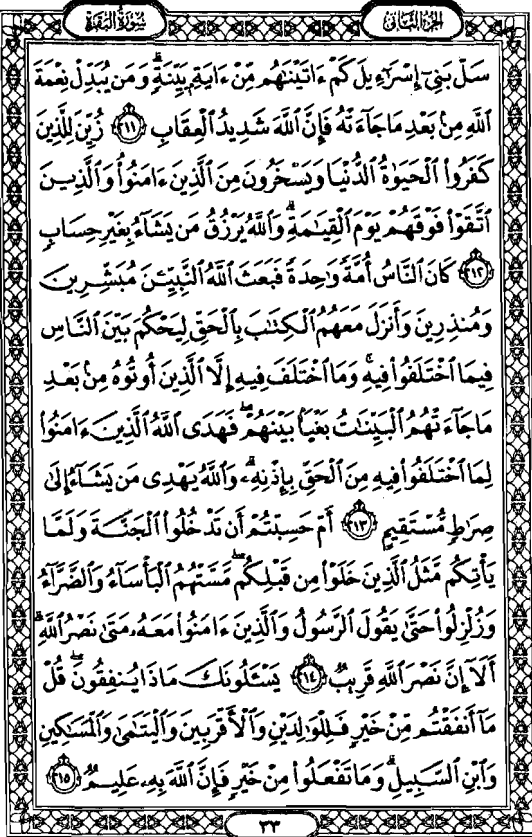 سُورَةُ الْبَقَرَةِ
الجُزْءُ الثَّانِى
سَلْ بَنِىٓ إِسْرَٰٓءِيلَ كَمْ ءَاتَيْنَٰهُم مِّنْ ءَايَةٍۭ بَيِّنَةٍۗ وَمَن يُبَدِّلْ نِعْمَةَ
ٱللَّهِ مِنۢ بَعْدِ مَا جَآءَتْهُ فَإِنَّ ٱللَّهَ شَدِيدُ ٱلْعِقَابِ ﴿٢١١﴾ زُيِّنَ لِلَّذِينَ
كَفَرُوا۟ ٱلْحَيَوٰةُ ٱلدُّنْيَا وَيَسْخَرُونَ مِنَ ٱلَّذِينَ ءَامَنُوا۟ۘ وَٱلَّذِينَ
ٱتَّقَوْا۟ فَوْقَهُمْ يَوْمَ ٱلْقِيَٰمَةِۗ وَٱللَّهُ يَرْزُقُ مَن يَشَآءُ بِغَيْرِ حِسَابٍ
﴿٢١٢﴾ كَانَ ٱلنَّاسُ أُمَّةً وَٰحِدَةً فَبَعَثَ ٱللَّهُ ٱلنَّبِيِّـۧنَ مُبَشِّرِينَ
وَمُنذِرِينَ وَأَنزَلَ مَعَهُمُ ٱلْكِتَٰبَ بِٱلْحَقِّ لِيَحْكُمَ بَيْنَ ٱلنَّاسِ
فِيمَا ٱخْتَلَفُوا۟ فِيهِۚ وَمَا ٱخْتَلَفَ فِيهِ إِلَّا ٱلَّذِينَ أُوتُوهُ مِنۢ بَعْدِ
مَا جَآءَتْهُمُ ٱلْبَيِّنَٰتُ بَغْيًۢا بَيْنَهُمْۖ فَهَدَى ٱللَّهُ ٱلَّذِينَ ءَامَنُوا۟
لِمَا ٱخْتَلَفُوا۟ فِيهِ مِنَ ٱلْحَقِّ بِإِذْنِهِۦۗ وَٱللَّهُ يَهْدِى مَن يَشَآءُ إِلَىٰ
صِرَٰطٍ مُّسْتَقِيمٍ ﴿٢١٣﴾ أَمْ حَسِبْتُمْ أَن تَدْخُلُوا۟ ٱلْجَنَّةَ وَلَمَّا
يَأْتِكُم مَّثَلُ ٱلَّذِينَ خَلَوْا۟ مِن قَبْلِكُمۖ مَّسَّتْهُمُ ٱلْبَأْسَآءُ وَٱلضَّرَّآءُ
وَزُلْزِلُوا۟ حَتَّىٰ يَقُولَ ٱلرَّسُولُ وَٱلَّذِينَ ءَامَنُوا۟ مَعَهُۥ مَتَىٰ نَصْرُ ٱللَّهِۗ
أَلَآ إِنَّ نَصْرَ ٱللَّهِ قَرِيبٌ ﴿٢١٤﴾ يَسْـَٔلُونَكَ مَاذَا يُنفِقُونَۖ قُلْ
مَآ أَنفَقْتُم مِّنْ خَيْرٍ فَلِلْوَٰلِدَيْنِ وَٱلْأَقْرَبِينَ وَٱلْيَتَٰمَىٰ وَٱلْمَسَٰكِينِ
وَٱبْنِ ٱلسَّبِيلِۗ وَمَا تَفْعَلُوا۟ مِنْ خَيْرٍ فَإِنَّ ٱللَّهَ بِهِۦ عَلِيمٌ ﴿٢١٥﴾
٣٣